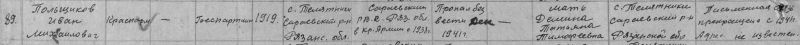 89.
Польщиков
Иван
Михайлович
Красноарм
—
Беспартийн
1919.
с. Телятники
Сараевский р-н
Рязанс. обл
Сараевским
Р.В.К. Ряз. обл.
в Кр. Армии с 1938г.
Пропал без
вести
1941г.
—
мать
Демина
Татьяна
Тимофеевна
с. Телятники
Сараевский р-н
Рязанской обл
Письменная связь
прекращена с 1941г.
Адрес не известен.